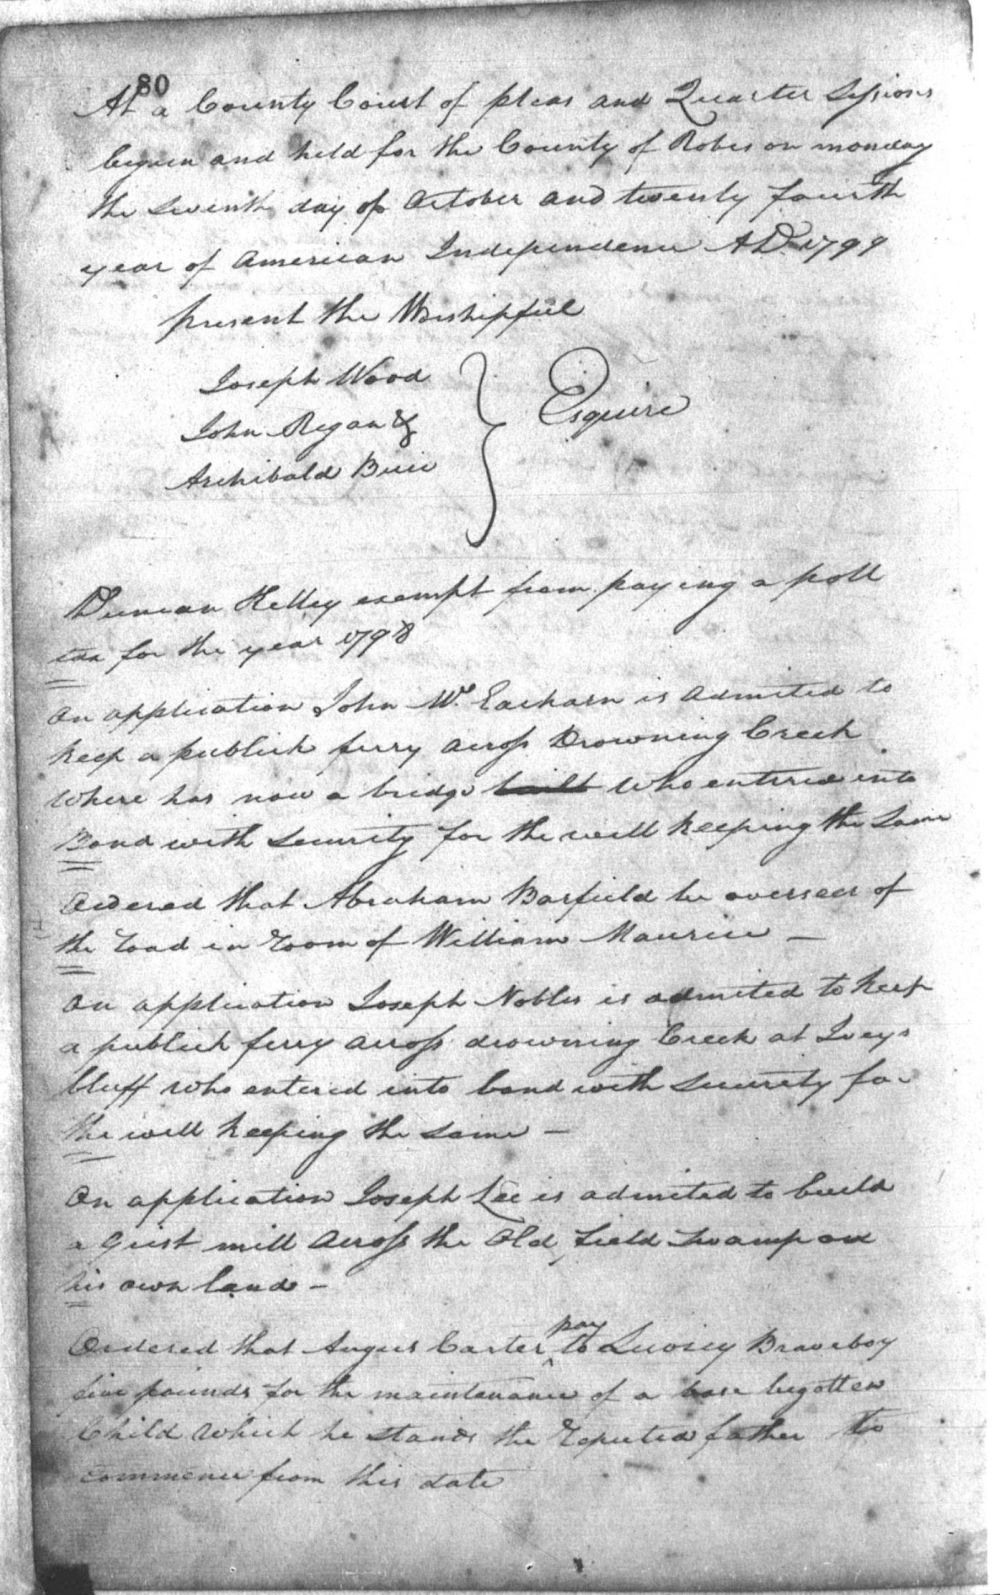 80
At a County Court of pleas and Quarter Sessions
begun and held for the County of Robes on monday
the seventh day of October and twenty fourth
year of American Independence AD 1799
present the Worshipful
Joseph Wood
John Regan &
Archibald Buie
Esquire
Duncan Kelley exempt from paying a poll
tax for the year 1798
On application John Mc Eacharn is admited to
keep a publick ferry across Drowning Creek
where has now a bridge built who entered into
Bond with security for the well keeping the Same
Ordered that Abraham Barfield be overseer of
the road in room of William Maurice —
On application Joseph Nobles is admited to keep
a publick ferry across drowning Creek at Iveys
bluff who entered into bond with security for
the well keeping the same —
On application Joseph Lee is admited to build
a Grist mill across the Old Field Swamp on
his own land —
Ordered that Angus Carter pay to Braveboy
five pounds for the maintenance of a base begotten
Child which he stands the reputed father to
commence from this date